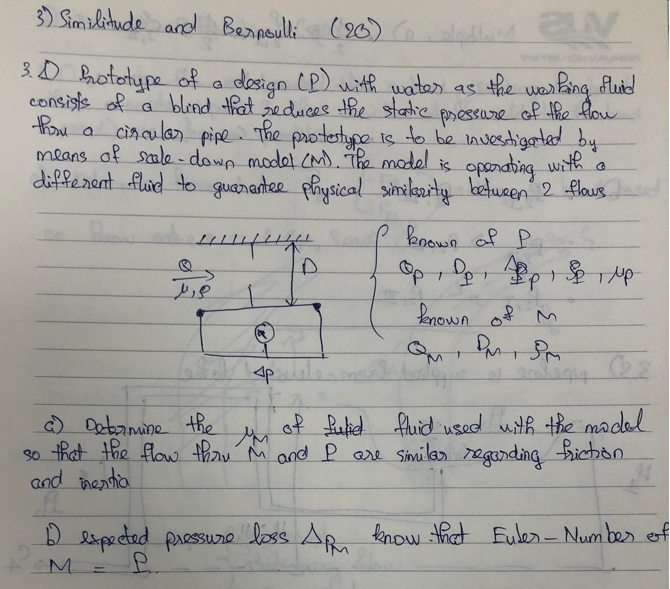 3) Similitude and Bernoulli (20)
3.1) Prototype of a design (P) with water as the working fluid
consists of a blind that reduces the static pressure of the flow
thru a circular pipe. The prototype is to be investigated by
means of scale-down model (M). The model is operating with a
different fluid to guarantee physical similarity between 2 flows
known of P
Q_P, D_P, Δp_P, ρ_P, μ_P
known of M
Q_M, D_M, ρ_M
Q
μ,ρ
D
Δp
a) Determine the μ_M of fluid used with the model
so that the flow thru M and P are similar regarding friction
and inertia
b) expected pressure loss Δp_M know that Euler-Number of
M = P.